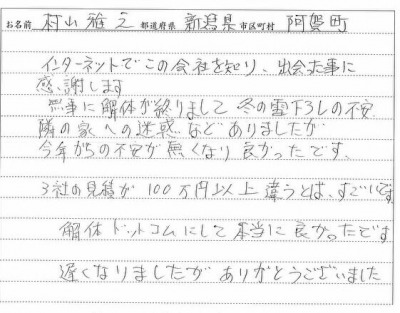 お名前 村山 雅之 都道府県 新潟県 市区町村 阿賀町
インターネットでこの会社を知り、出会えた事に
感謝します
無事に解体が終りまして冬の雪下ろしの不安
隣の家への迷惑などありましたが
今年からの不安が無くなり良かったです、
3社の見積が100万円以上違うとは、すごいです
解体ドットコムにして本当に良かったです
遅くなりましたがありがとうございました